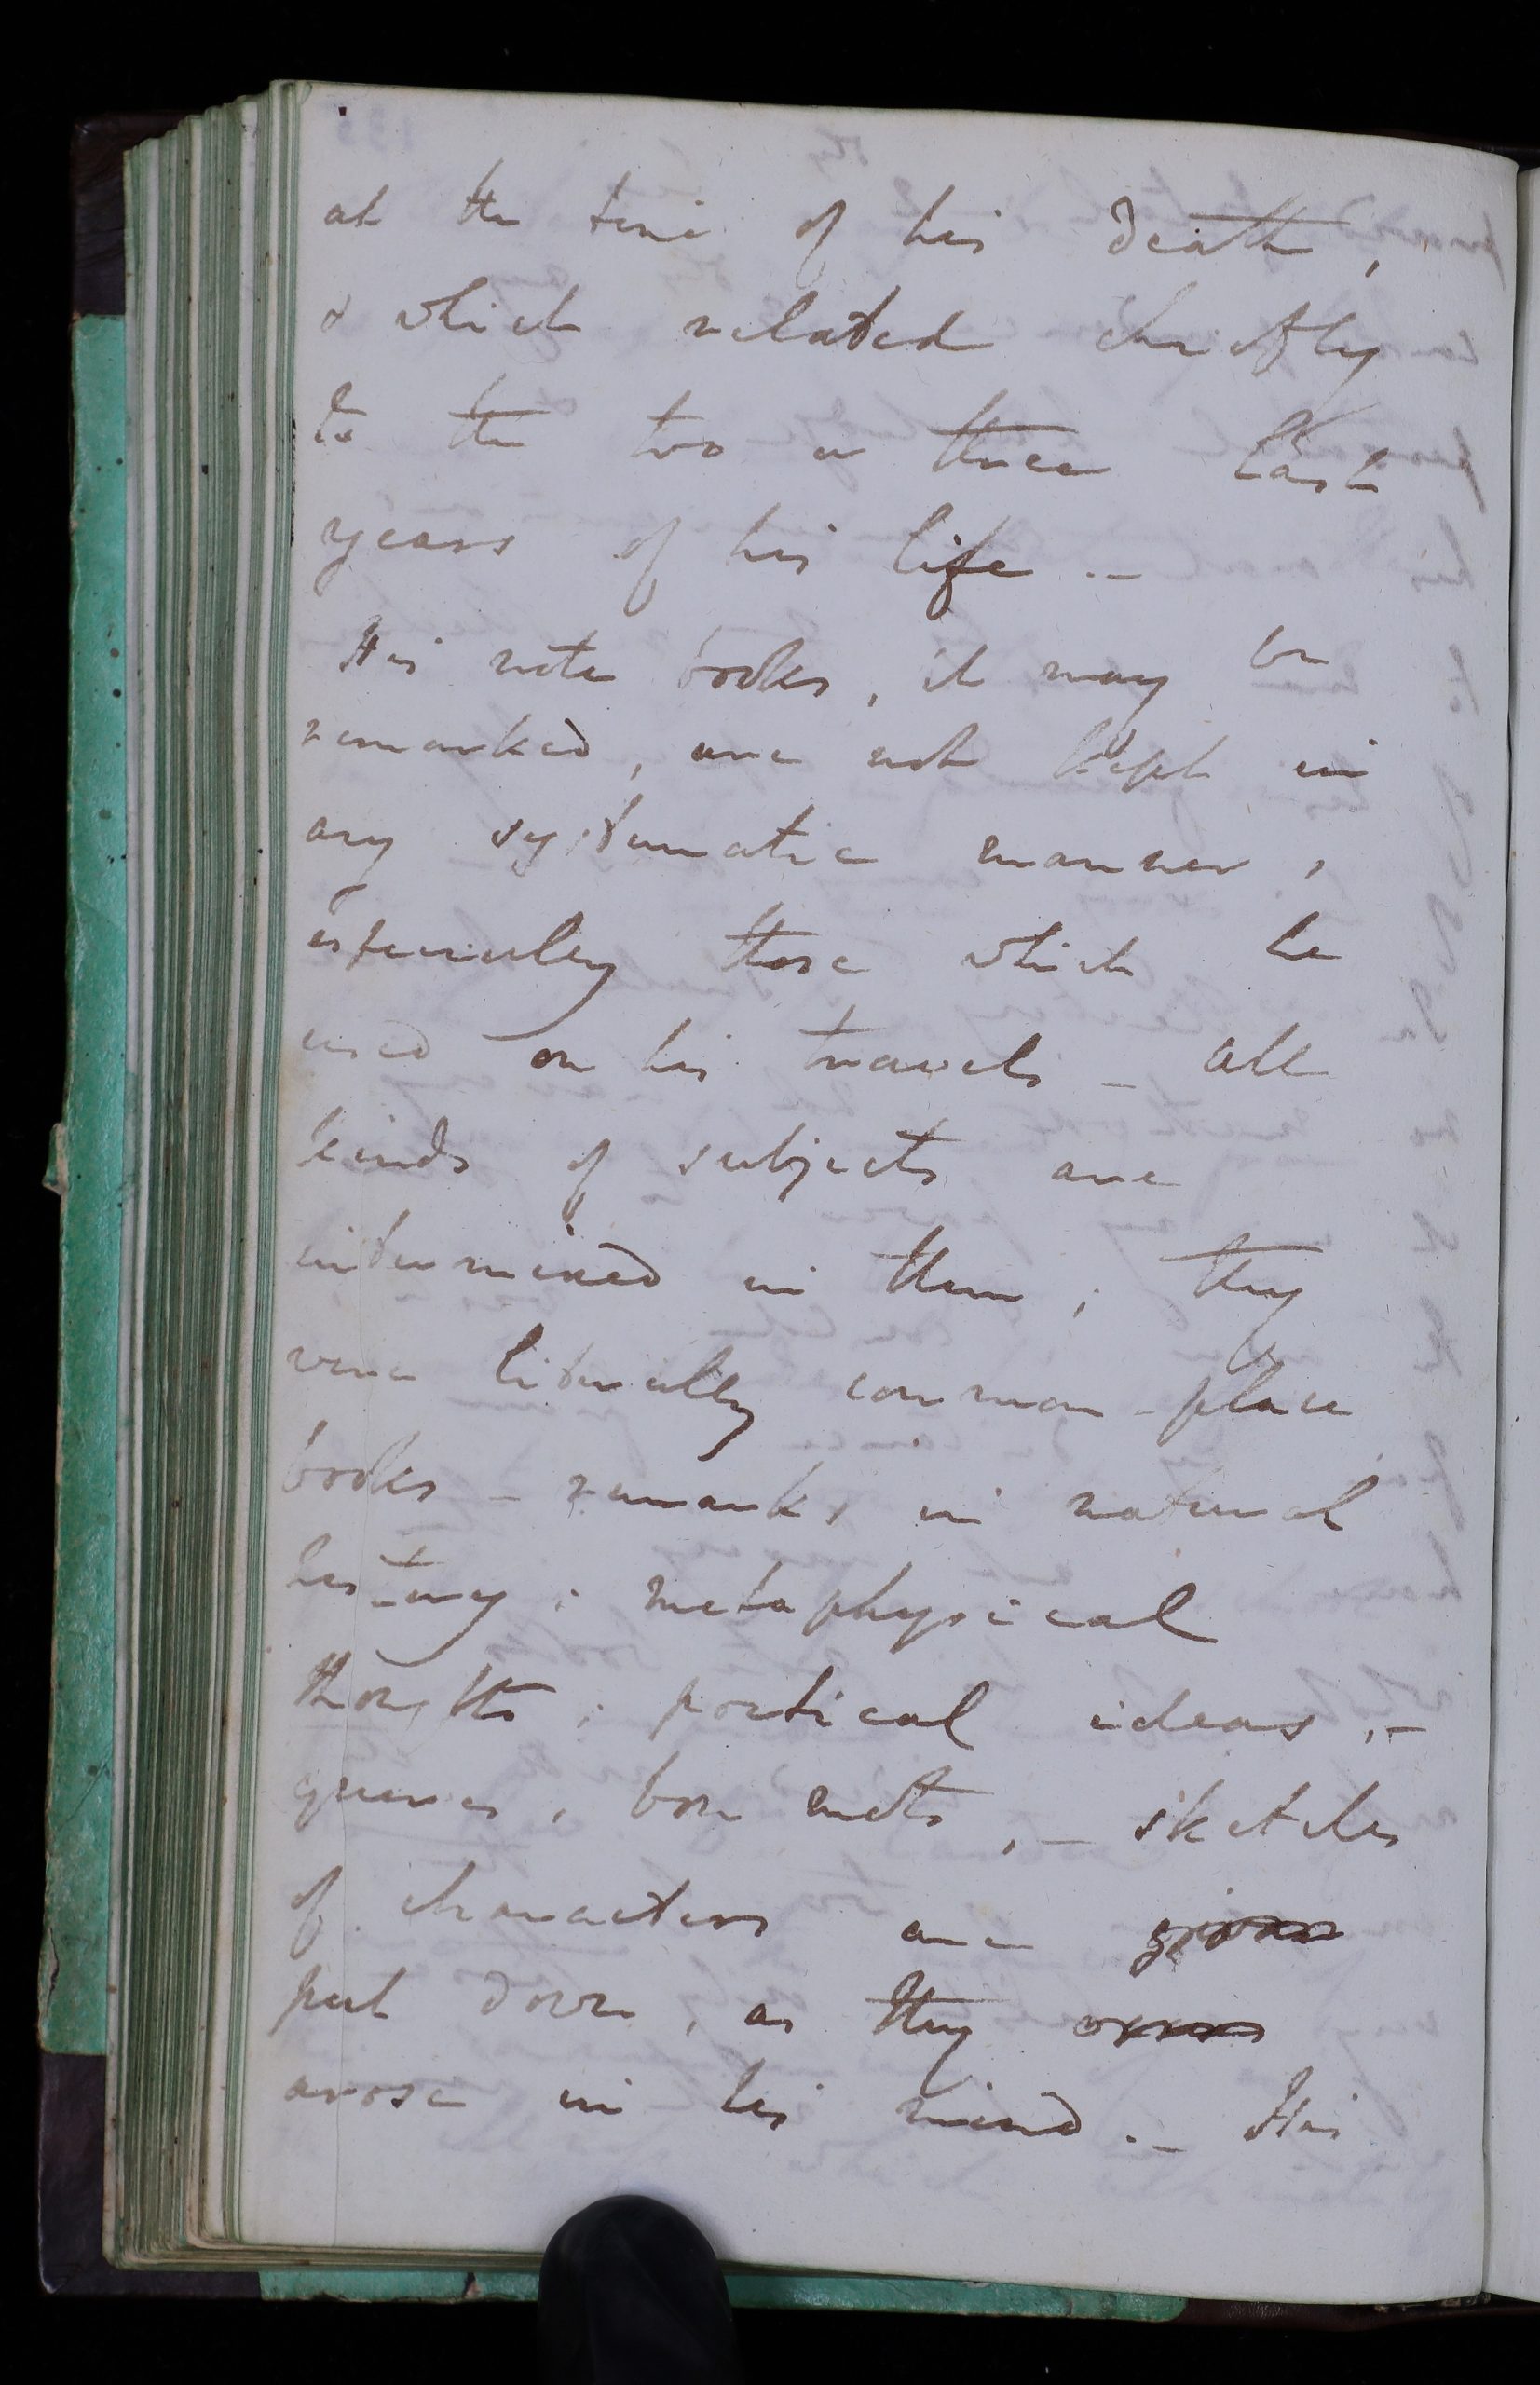 at the time of his death,
& which related chiefly
to the two or three last
years of his life .—
His note books, it may be
remarked, are not kept in
any systematic manner,
especially those which he
used on his travels — all
kinds of subjects are
intermixed in them; they
were literally common-place
books — remarks in natural
history; metaphysical
thoughts; poetical ideas,—
queries, bon mots, — sketches
of characters are given
put down, as they
arose in his mind .— His